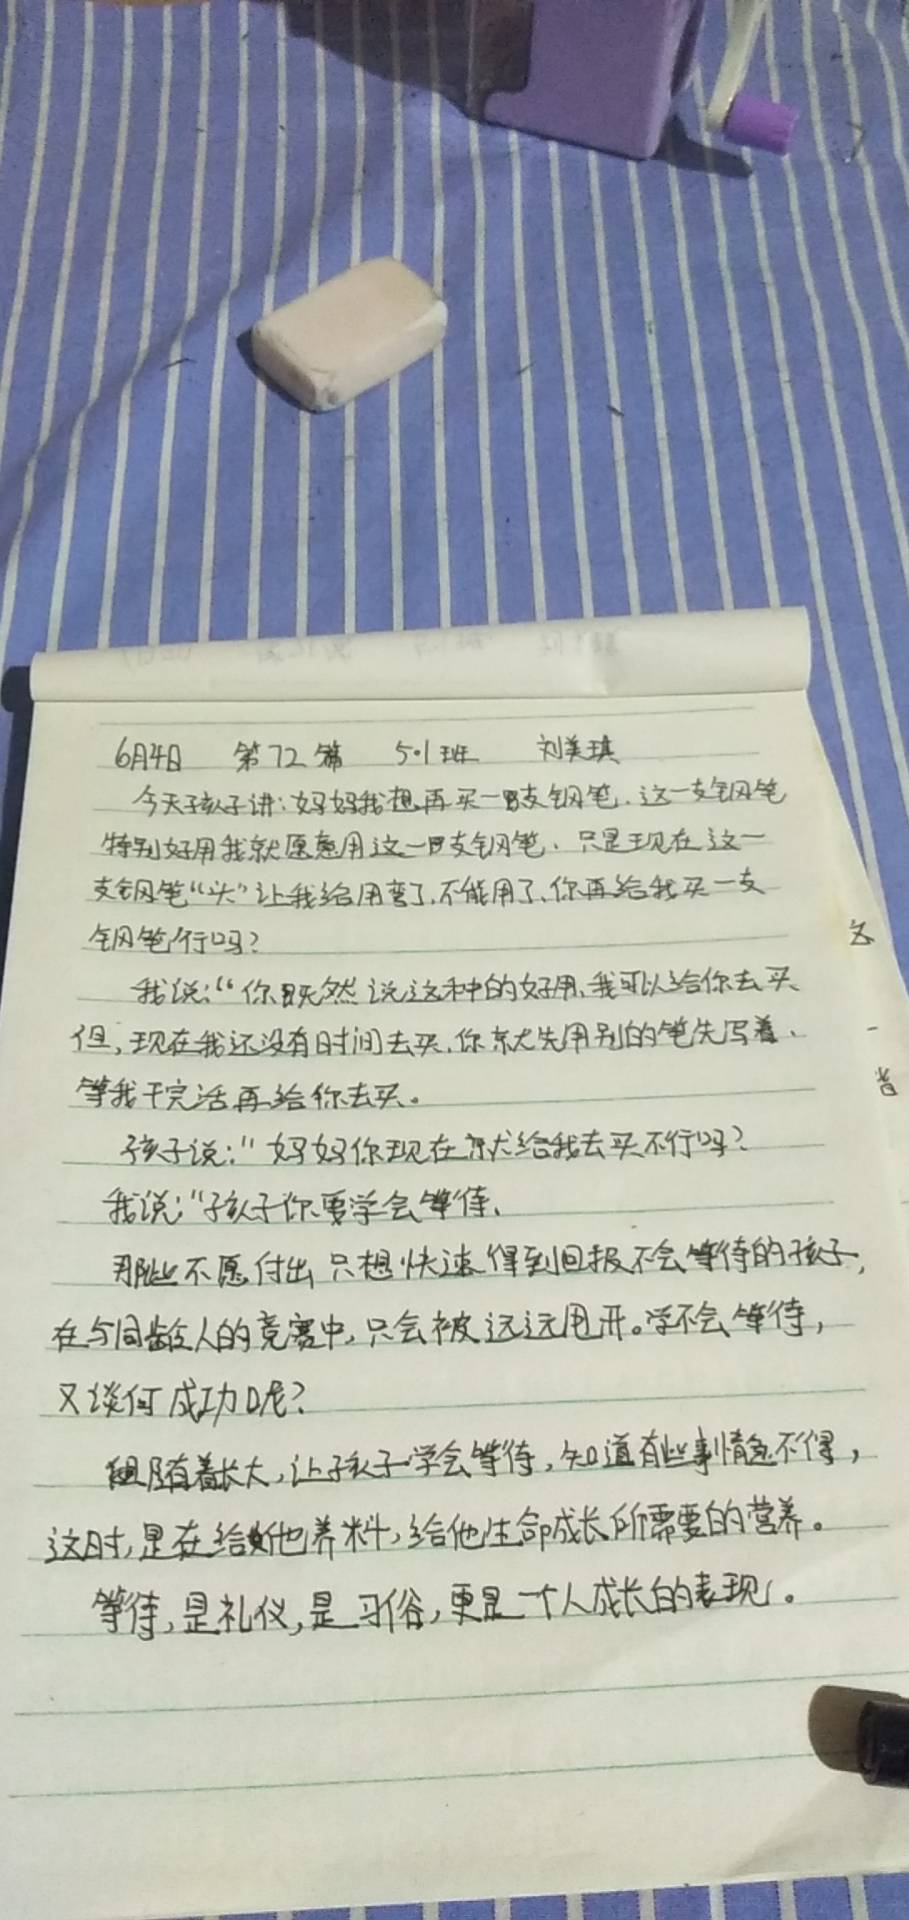 6月4日 第72篇 501班 刘美琪
今天孩子讲:妈妈我想再买一支钢笔.这一支钢笔
特别好用我就愿意用这一支钢笔.只是现在这一
支钢笔“头”让我给用弯了.不能用了、你再给我买一支
钢笔行吗?
我说:“你既然说这种的好用、我可以给你去买
但,现在我还没有时间去买.你就先用别的笔先写着.
等我干完活再给你去买。
孩子说:“妈妈你现在就给我去买不行吗?
我说:“孩子你要学会等待.
那些不愿付出只想快速得到回报不会等待的孩子,
在与同龄人的竞赛中,只会被远远甩开。学不会等待,
又谈何成功呢?
但随着长大,让孩子学会等待,知道有些事情急不得,
这时,是在给他养料,给他生命成长所需要的营养。
等待,是礼仪,是习俗,更是一个人成长的表现。